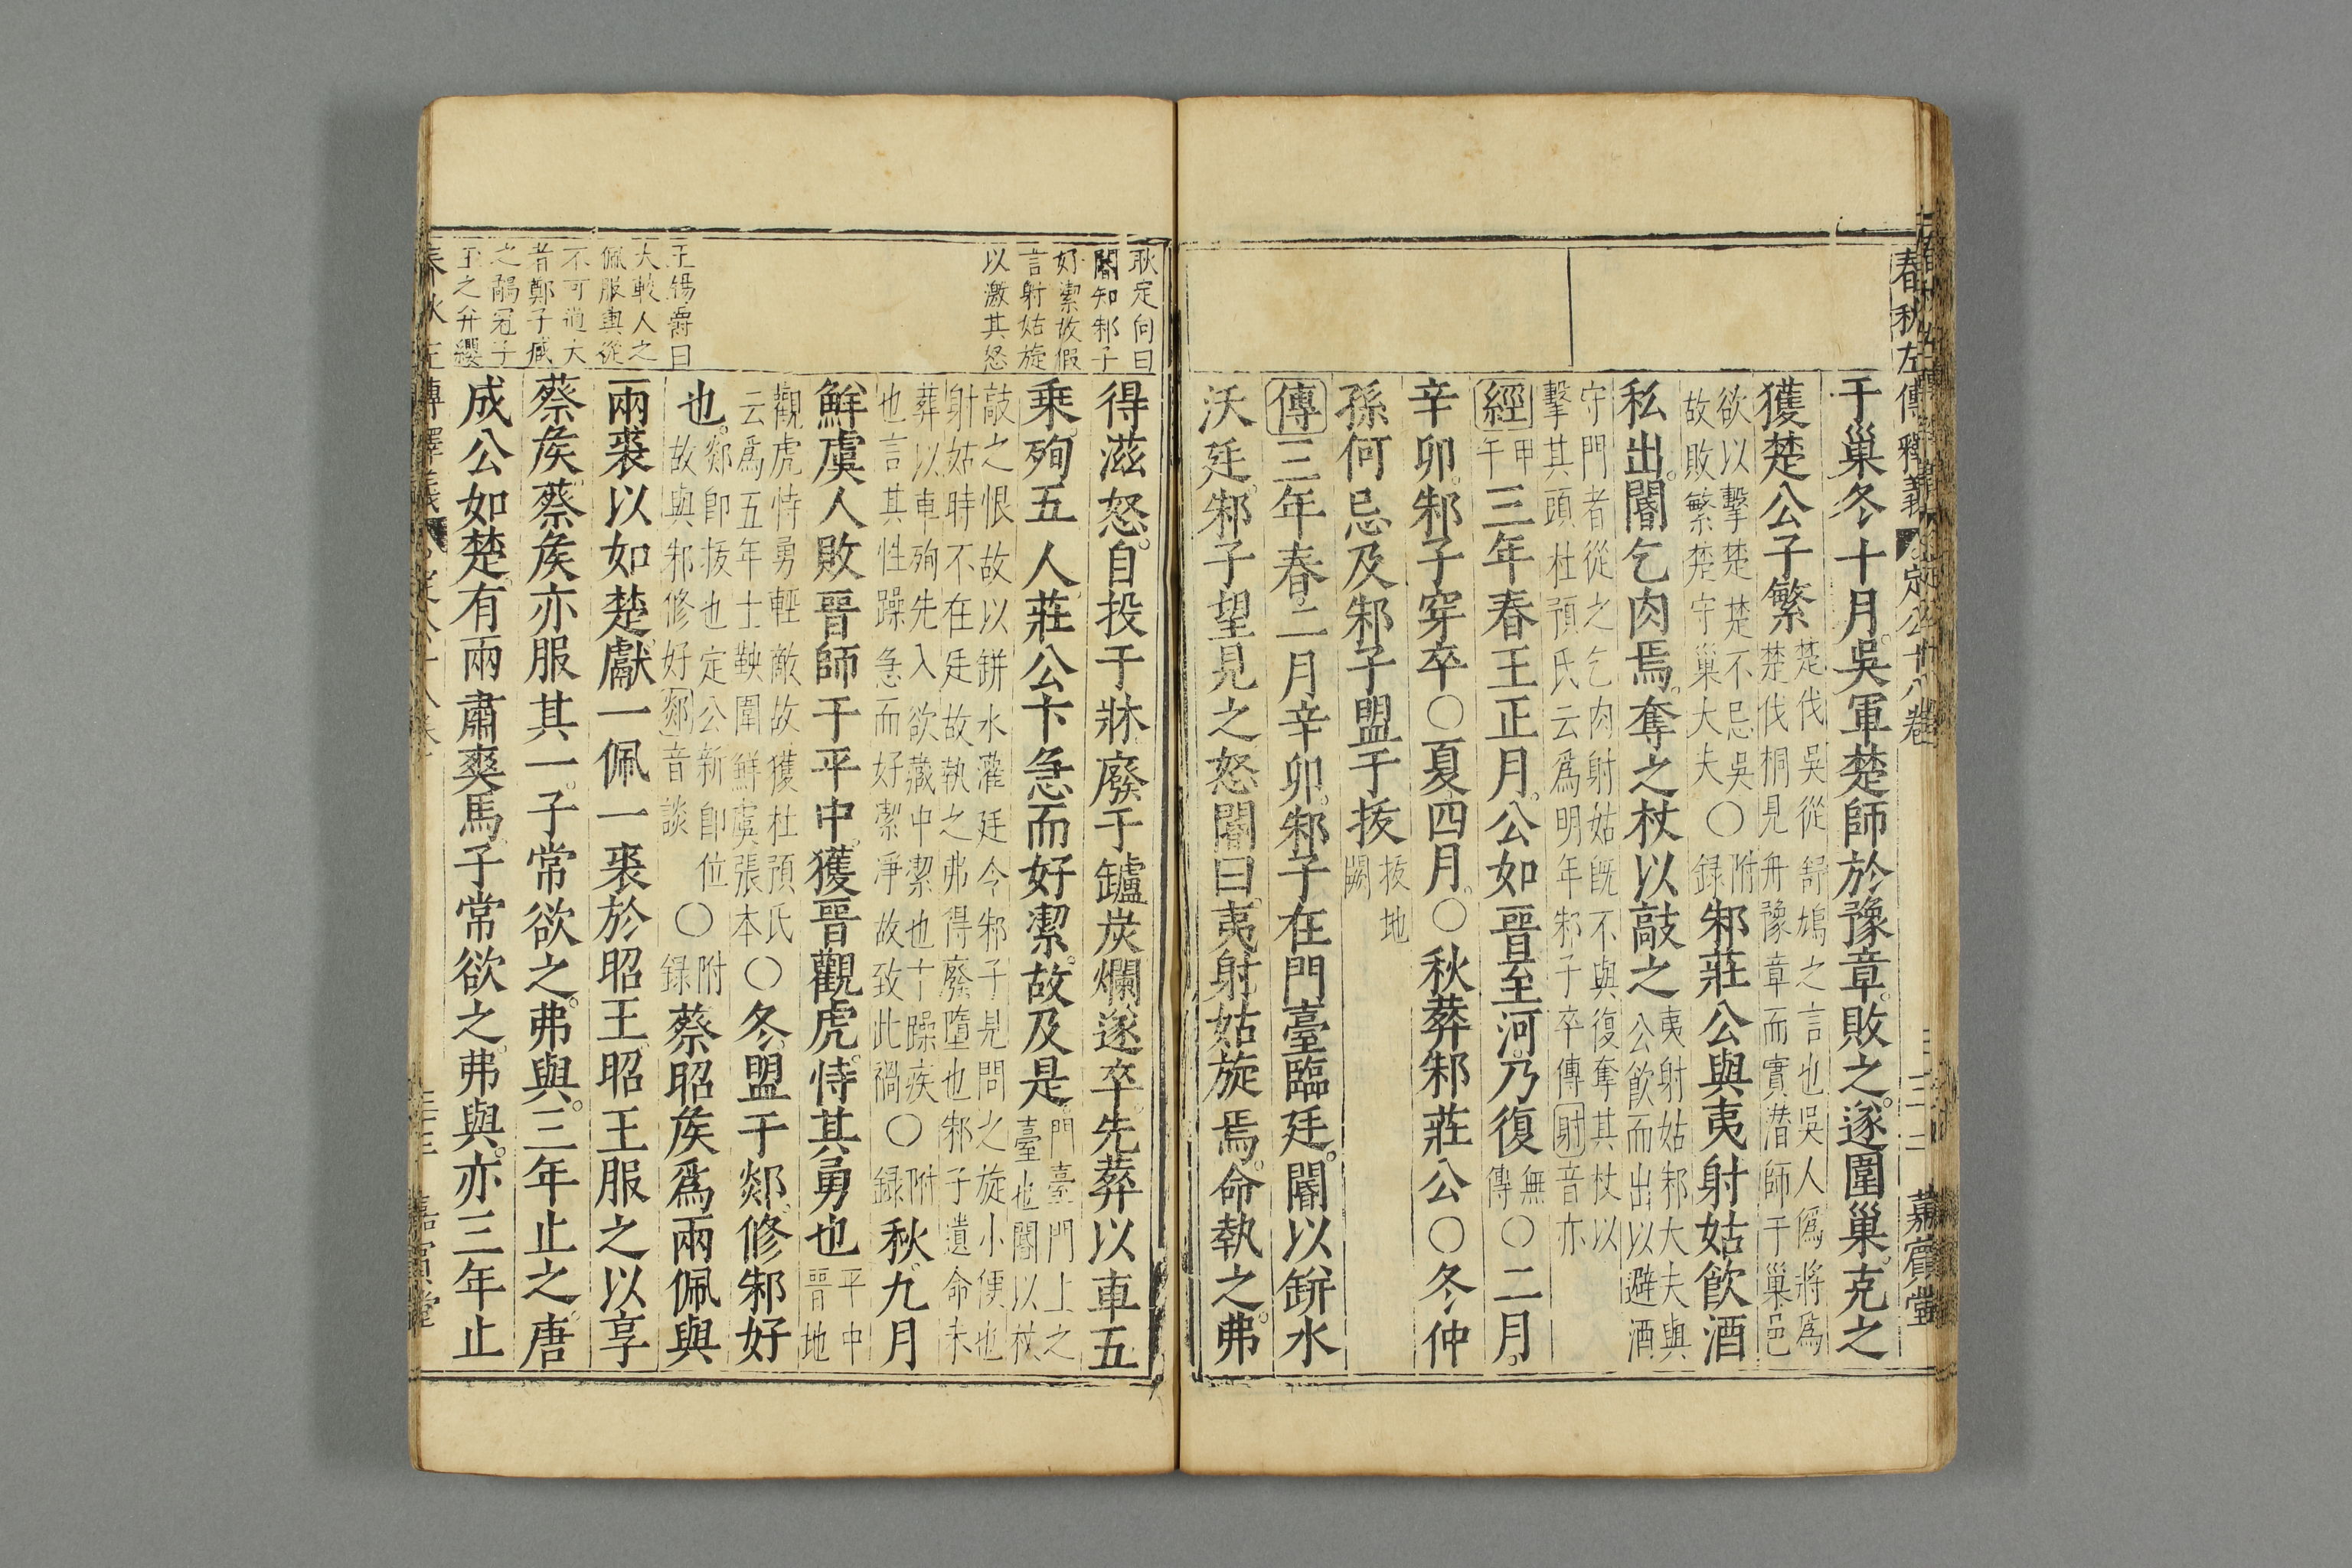 春秋左傳釋義 定公十八卷 嘉賓堂
于巢冬十月吳軍楚師於豫章敗之遂圍巢克之
獲楚公子繁
楚伐吳從舒鳩之言也吳人僞將爲
楚伐桐見舟豫章而實潛師于巢邑
欲以擊楚楚不忌吳
故敗繁楚守巢大夫
○
附
録
邾莊公與夷射姑飲酒
私出閽乞肉焉奪之杖以敲之
夷射姑邾大夫與
公飲而出以避酒
守門者從之乞肉射姑既不與復奪其杖以
擊其頭杜預氏云爲明年邾子卒傳射音亦
經
甲
午
三年春王正月公如晉至河乃復
無
傳
○二月
辛卯邾子穿卒○夏四月○秋葬邾莊公○冬仲
孫何忌及邾子盟于拔
拔地
闕
傳三年春二月辛卯邾子在門臺臨廷閽以缾水
沃廷邾子望見之怒閽曰夷射姑旋焉命執之弗
耿定向曰
閽知邾子
好潔故假
言射姑旋
以激其怒
得滋怒自投于牀廢于鑪炭爛遂卒先葬以車五
乗殉五人莊公卞急而好潔故及是
門臺門上之
臺也閽以杖
敲之恨故以缾水灌廷今邾子見問之旋小便也
射姑時不在廷故執之弗得廢墮也邾子遺命未
葬以車殉先入欲藏中潔也卞躁疾
也言其性躁急而好潔淨故致此禍
○
附
録
秋九月
鮮虞人敗晉師于平中獲晉觀虎恃其勇也
平中
晉地
觀虎恃勇輕敵故獲杜預氏
云爲五年士鞅圍鮮虞張本
○冬盟于郯修邾好
也
郯即拔也定公新即位
故與邾修好郯音談
○
附
録
蔡昭矦爲兩佩與
王錫爵曰
大較人之
佩服輿從
不可過大
者鄭子臧
之鷸冠子
玉之弁纓
兩裘以如楚獻一佩一裘於昭王昭王服之以享
蔡矦蔡矦亦服其一子常欲之弗與三年止之唐
成公如楚有兩肅爽馬子常欲之弗與亦三年止